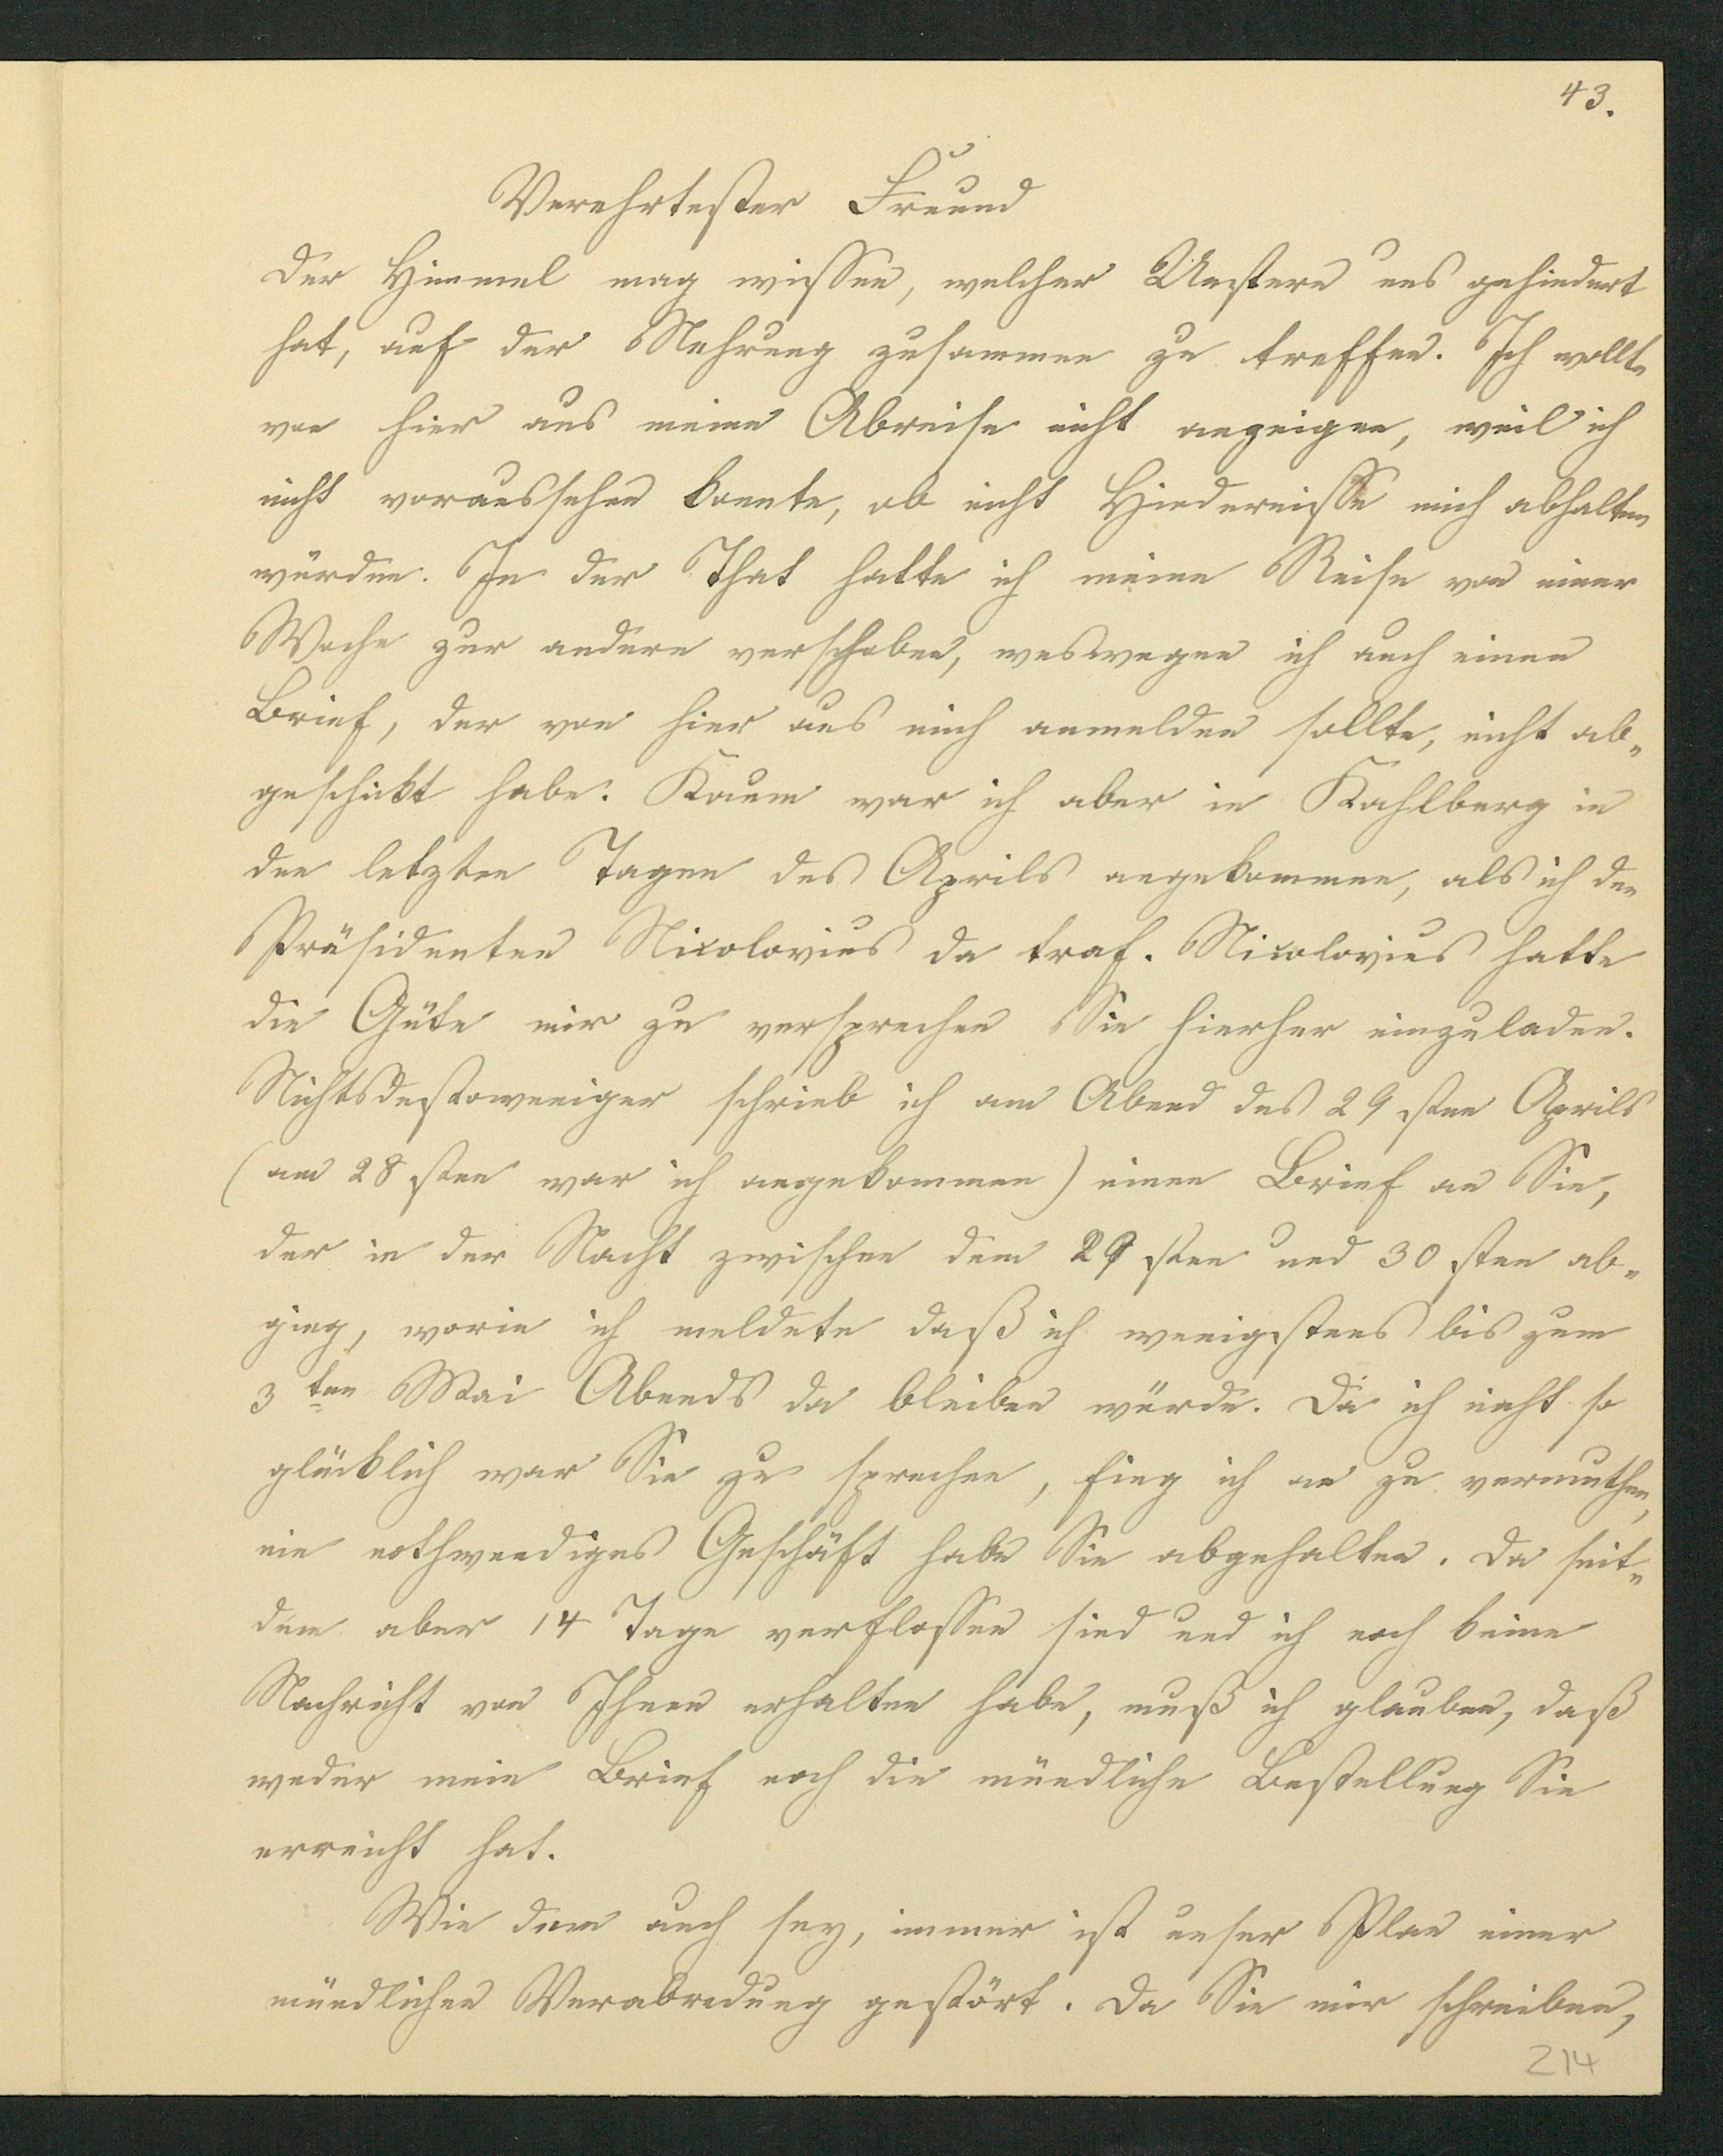 43.
Verehrtester Freund
Der Himmel mag wissen, welcher Unstern uns gehindert
hat, auf der Nehrung zusammen zu treffen. Ich wollte
von hier aus meine Abreise nicht anzeigen, weil ich
nicht voraussehen konnte, ob nicht Hindernisse mich abhalten
würden. In der That hatte ich meine Reise von einer
Woche zur andern verschoben, weswegen ich auch einen
Brief, der von hier aus mich anmelden sollte, nicht ab-
geschickt habe. Kaum war ich aber in Kahlberg in
den letzten Tagen des Aprils angekommen, als ich den
Präsidenten Nicolovius da traf. Nicolovius hatte
die Güte mir zu versprechen Sie hierher einzuladen.
Nichtsdestoweniger schrieb ich am Abend des 29 sten Aprils
(am 28 sten war ich angekommen) einen Brief an Sie,
der in der Nacht zwischen dem 29 sten und 30 sten ab-
ging, worin ich meldete daß ich wenigstens bis zum
3ten Mai Abends da bleiben würde. Da ich nicht so
glücklich war Sie zu sprechen, fing ich an zu vermuthen,
ein nothwendiges Geschäft habe Sie abgehalten. Da seit-
dem aber 14 Tage verflossen sind und ich noch keine
Nachricht von Ihnen erhalten habe, muß ich glauben, daß
weder mein Brief noch die mündliche Bestellung Sie
erreicht hat.
Wie dem auch sey, immer ist unser Plan einer
mündlichen Verabredung gestört. Da Sie mir schreiben,
214